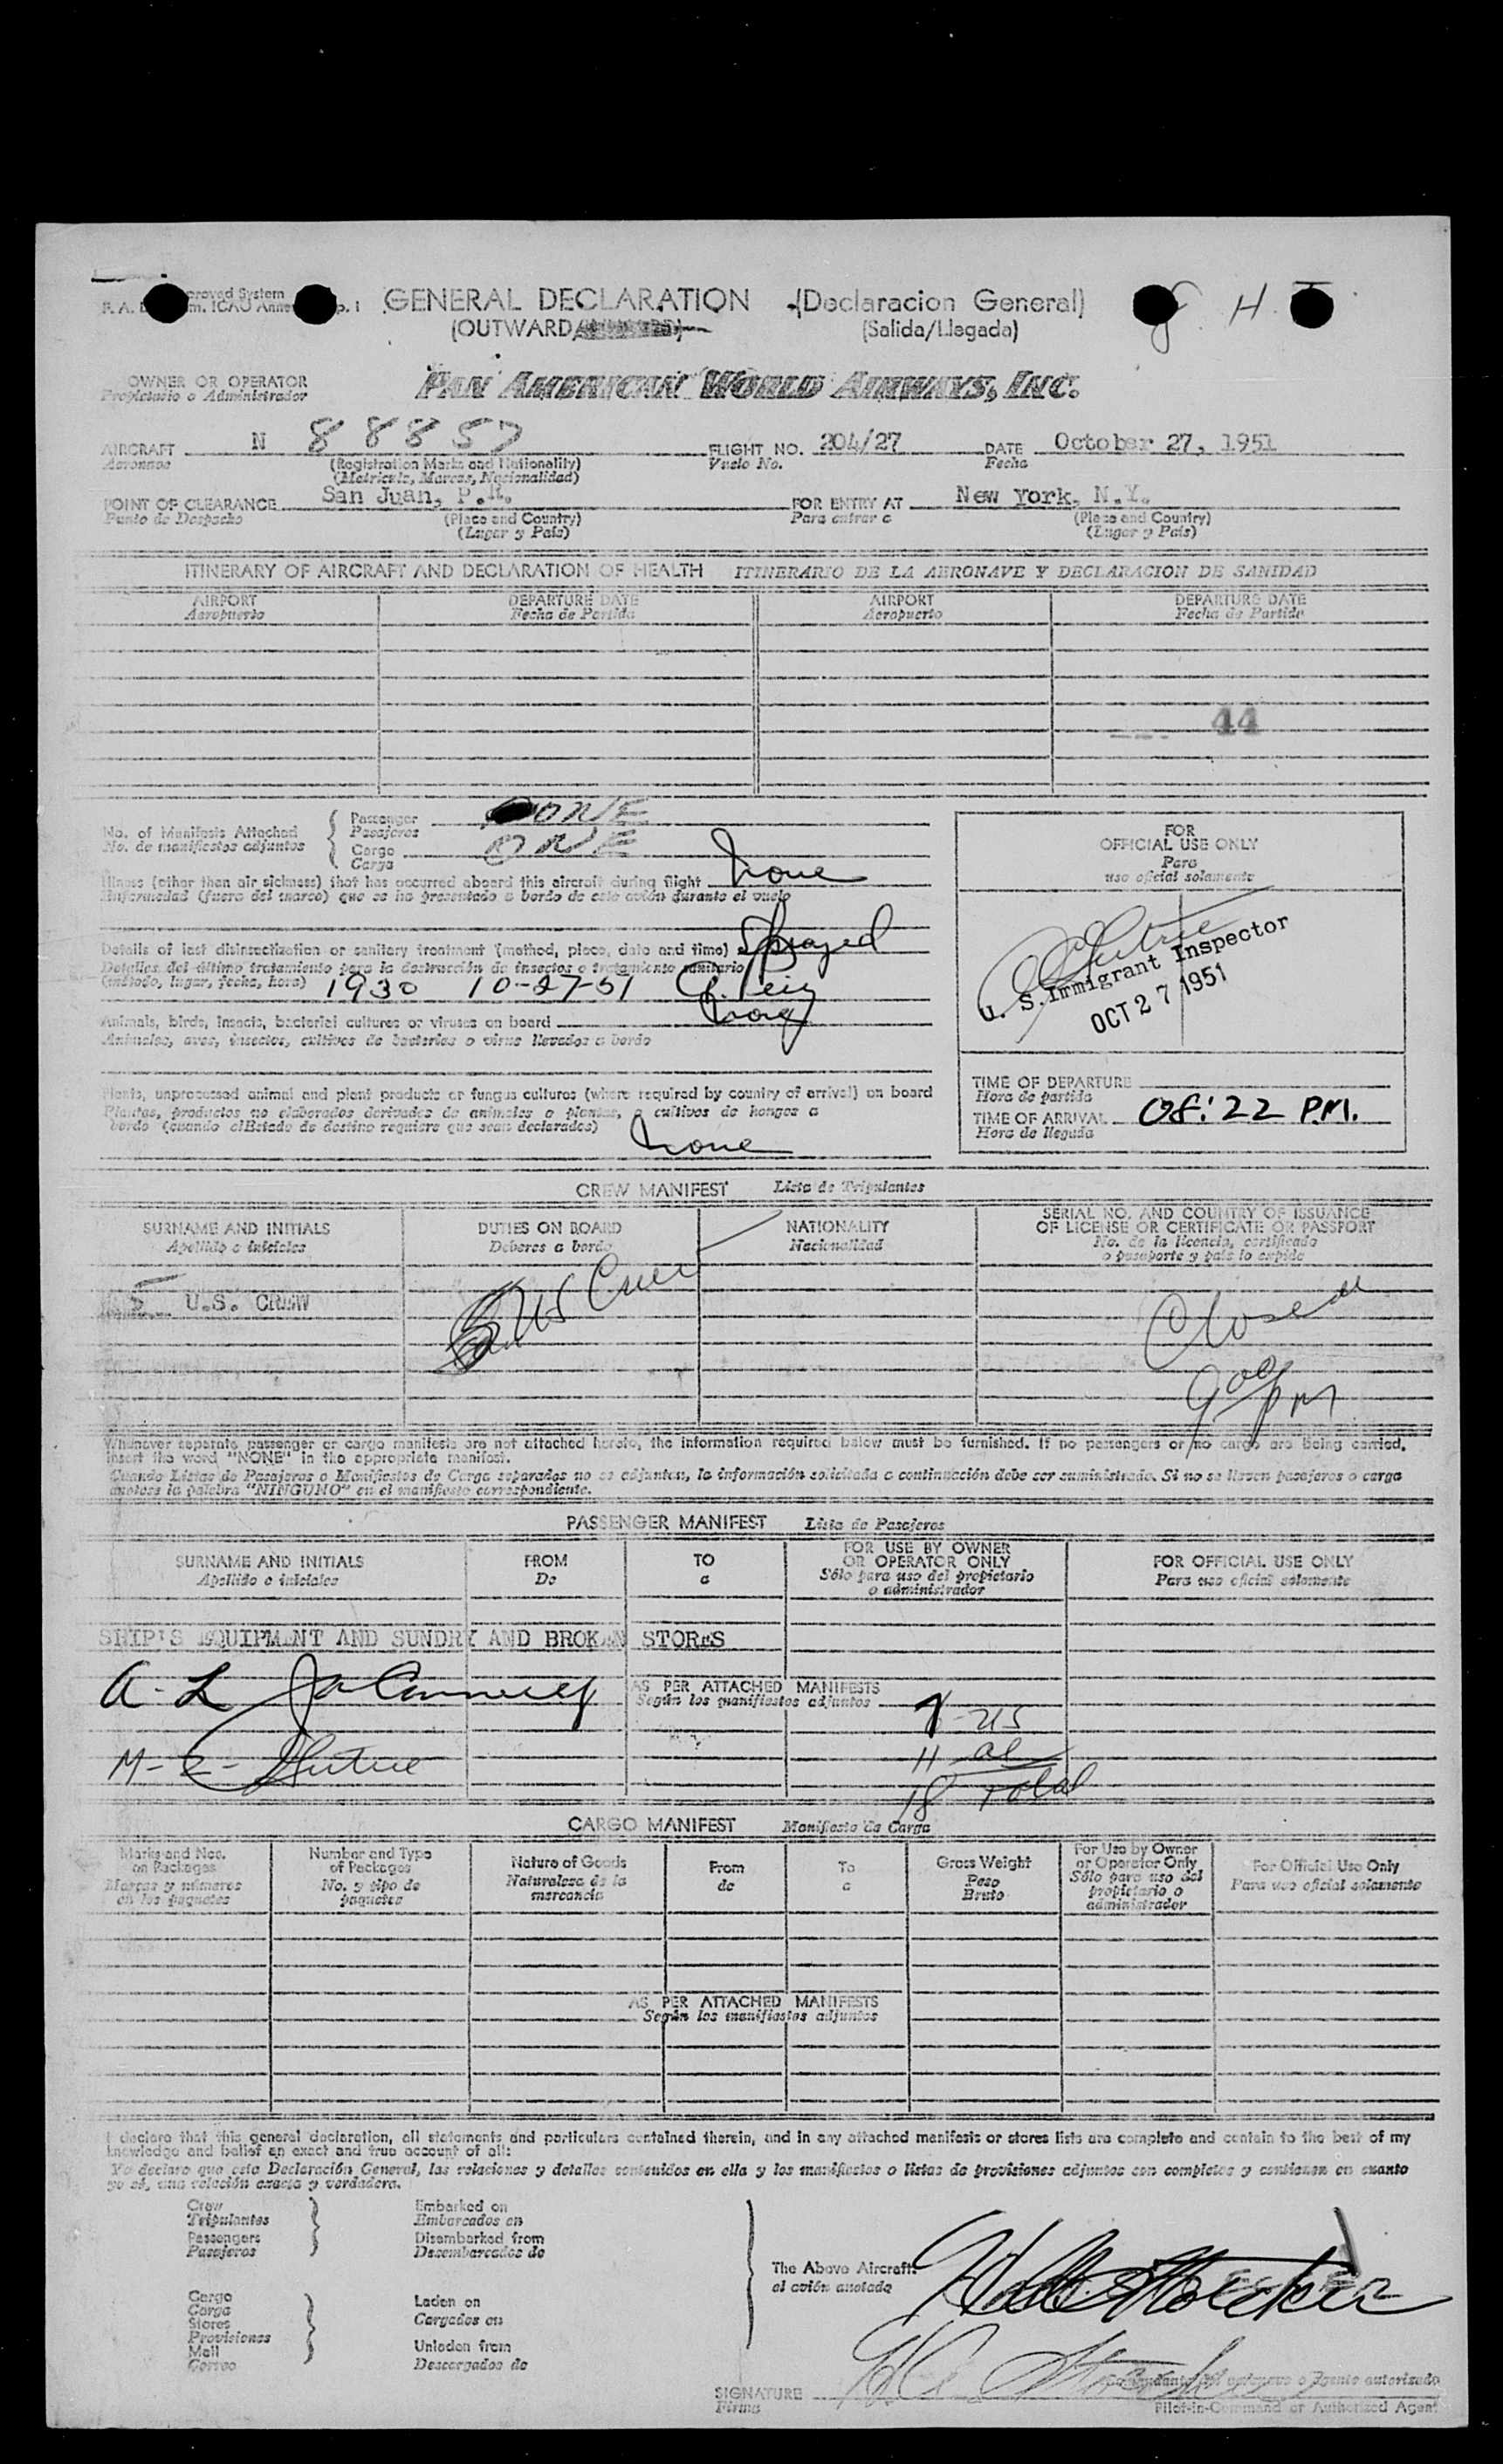 GENERAL DECLARATION (Declaracion General)
(OUTWARD
(Salida/Llegada)
OWNER OR OPERATOR PAN AMERICAN WORLD AIRWAYS, INC.
Propietario o Administrador
AIRCRAFT N 88857 FLIGHT NO. 204/27 DATE October 27, 1951
Aeronave (Registration Marks and Nationality) Vuelo No. Fecha
(Matricula, Marcas, Nacionalidad)
POINT OF CLEARANCE San Juan, P.R. FOR ENTRY AT New York, N.Y.
Punto de Despacho (Place and Country) Para entrar a (Place and Country)
(Lugar y País) (Lugar y País)
ITINERARY OF AIRCRAFT AND DECLARATION OF HEALTH ITINERARIO DE LA AERONAVE Y DECLARACION DE SANIDAD
AIRPORT DEPARTURE DATE AIRPORT DEPARTURE DATE
Aeropuerto Fecha de Partida Aeropuerto Fecha de Partida
44
No. of Manifests Attached Passenger ONE
No. de manifiestos adjuntos Pasajeros
Cargo ONE
Carga
Illness (other than air sickness) that has occurred aboard this aircraft during flight None
Enfermedad (fuera del mareo) que se ha presentado a bordo de este avión durante el vuelo
Details of last disinsectization or sanitary treatment (method, place, date and time) Sprayed
Detalles del último tratamiento para la destrucción de insectos o tratamiento sanitario
(método, lugar, fecha, hora) 1930 10-27-51
Animals, birds, insects, bacterial cultures or viruses on board None
Animales, aves, insectos, cultivos de bacterias o virus llevados a bordo
Plants, unprocessed animal and plant products or fungus cultures (where required by country of arrival) on board
Plantas, productos no elaborados derivados de animales o plantas, o cultivos de hongos a
bordo (cuando el Estado de destino requiere que sean declarados)
None
FOR
OFFICIAL USE ONLY
Para
uso oficial solamente
U. S. Immigrant Inspector
OCT 27 1951
TIME OF DEPARTURE
Hora de partida
TIME OF ARRIVAL 08:22 P.M.
Hora de llegada
CREW MANIFEST Lista de Tripulantes
SURNAME AND INITIALS DUTIES ON BOARD NATIONALITY SERIAL NO. AND COUNTRY OF ISSUANCE
OF LICENSE OR CERTIFICATE OR PASSPORT
Apellido e iniciales Deberes a bordo Nacionalidad No. de la licencia, certificado
o pasaporte y país lo expide
5 U.S. CREW US Crew
Closed
9 00 PM
Whenever separate passenger or cargo manifests are not attached hereto, the information required below must be furnished. If no passengers or no cargo are being carried,
insert the word "NONE" in the appropriate manifest.
Cuando Listas de Pasajeros o Manifiestos de Carga separados no se adjunten, la información solicitada a continuación debe ser suministrada. Si no se llevan pasajeros o carga
anótese la palabra "NINGUNO" en el manifiesto correspondiente.
PASSENGER MANIFEST Lista de Pasajeros
SURNAME AND INITIALS FROM TO FOR USE BY OWNER
OR OPERATOR ONLY FOR OFFICIAL USE ONLY
Apellido e iniciales De a Sólo para uso del propietario
o administrador Para uso oficial solamente
SHIP'S EQUIPMENT AND SUNDRY AND BROKEN STORES
AS PER ATTACHED MANIFESTS
Según los manifiestos adjuntos
7 US
11 al
18 Total
CARGO MANIFEST Manifiesto de Carga
Marks and Nos.
on Packages
Marcas y números
en los paquetes
Number and Type
of Packages
No. y tipo de
paquetes
Nature of Goods
Naturaleza de la
mercancía
From
de
To
a
Gross Weight
Peso
Bruto
For Use by Owner
or Operator Only
Sólo para uso del
propietario o
administrador
For Official Use Only
Para uso oficial solamente
AS PER ATTACHED MANIFESTS
Según los manifiestos adjuntos
I declare that this general declaration, all statements and particulars contained therein, and in any attached manifests or stores lists are complete and contain to the best of my
knowledge and belief an exact and true account of all:
Yo declaro que esta Declaración General, las relaciones y detalles contenidos en ella y los manifiestos o listas de provisiones adjuntos son completos y contienen en cuanto
yo sé, una relación exacta y verdadera.
Crew Embarked on
Tripulantes Embarcados en
Passengers Disembarked from
Pasajeros Desembarcados de
The Above Aircraft:
el avión anotado
Cargo Laden on
Carga Cargados en
Stores
Provisiones
Mail Unladen from
Correo Descargados de
SIGNATURE
Firma
Pilot-in-Command or Authorized Agent